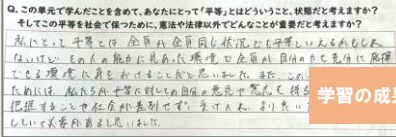 Q. この単元で学んだことを含めて、あなたにとって「平等」とはどういうこと、状態だと考えますか？
そしてこの平等を社会で保つために、憲法や法律以外でどんなことが重要だと考えますか？
私にとって平等とは全員が全員同じ状況でも平等といえるかもしれ
ないけどその人の能力に見あった環境で全員が自分の力を充分に発揮
できる環境に身をおけることだと思いました。また、この
ためには、私たちが平等に対しての自分の意見や意志を持ち
把握することや社会が差別せず、より良い
していく必要があると思いました。
学習の成果